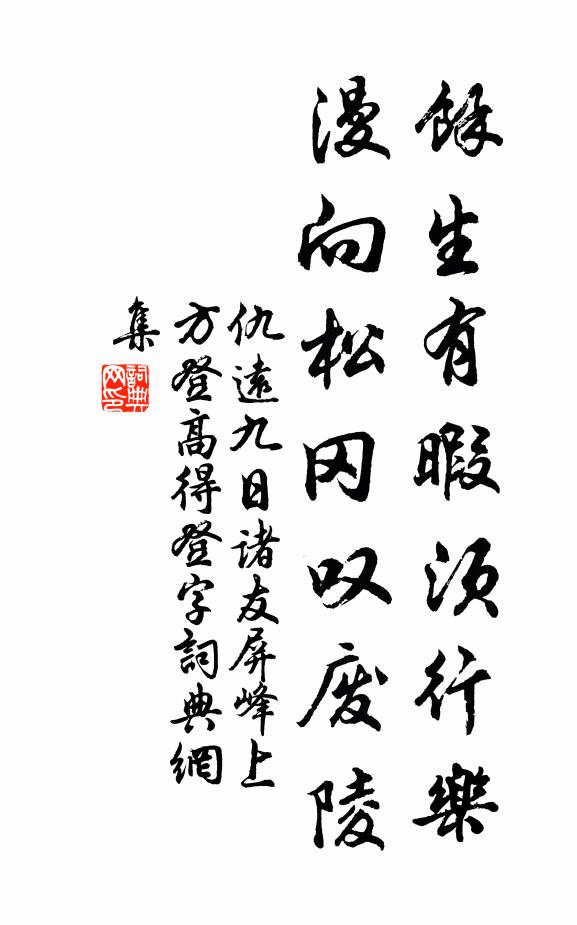 餘生有暇須行樂
漫向松冈叹废陵
仇遠九日諸友屏峰上
方登高得登字詞典網
集
詞典
网印